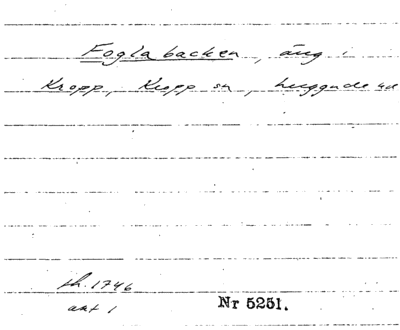 Foglabacken, äng i
Kropp, Kropp sn, Luggude hd
sh. 1746
akt 1
Nr 5251.